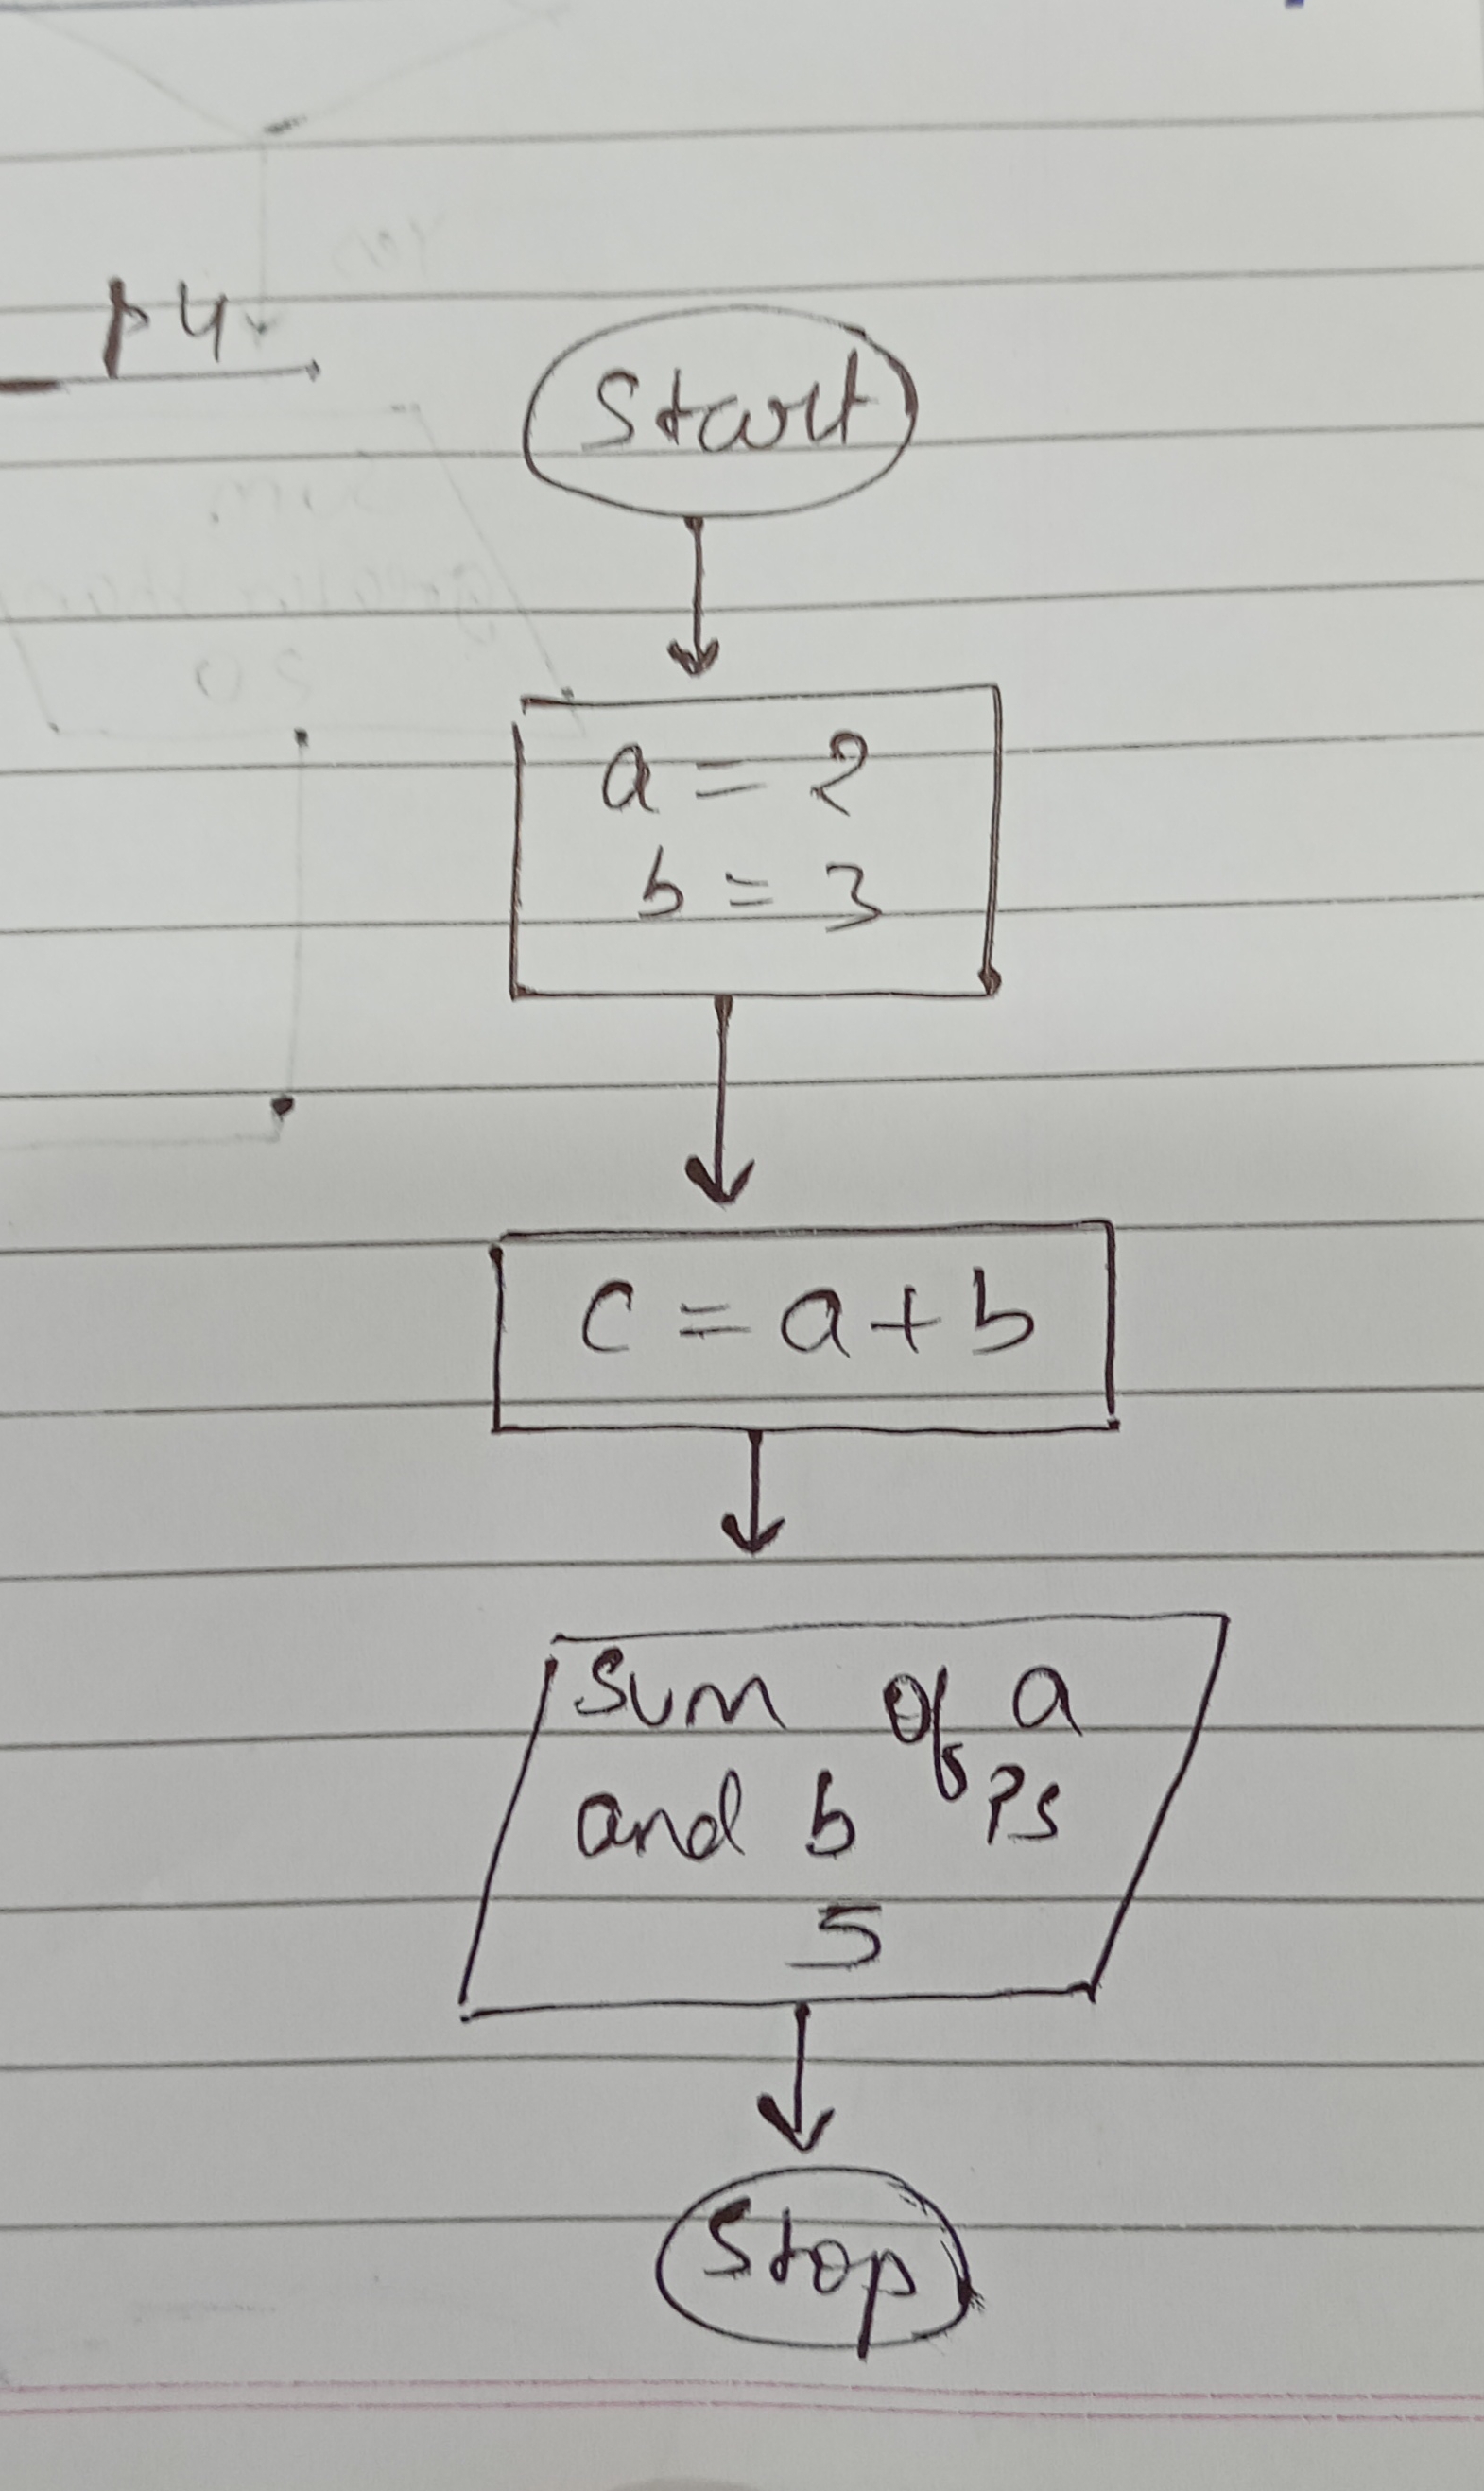 P4
Start
a = 2
b = 3
c = a + b
Sum of a
and b is
5
Stop